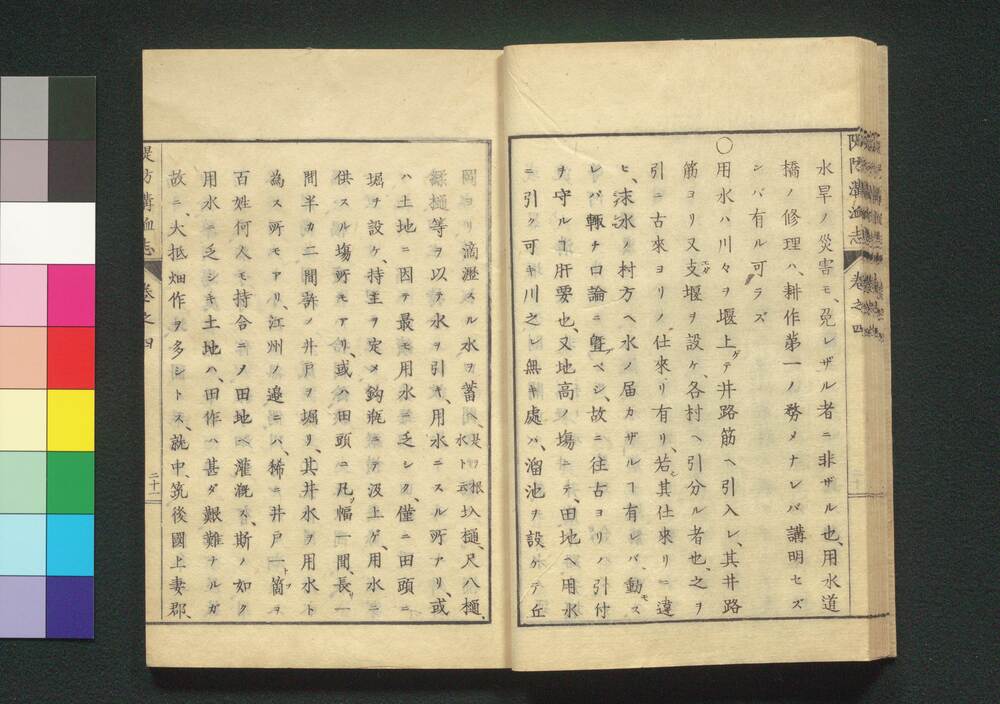 隄防溝洫志 卷之四
水旱ノ災害モ、免レザル者ニ非ザル也、用水道
橋ノ修理ハ、耕作第一ノ務メナレバ講明セズ
シバ有ル可ラズ
〇用水ハ川々ヲ堰上ゲテ井路筋ヘ引入レ、其井路
筋ヨリ又支堰ヲ設ケ、各村ヘ引分ル者也、之ヲ
引ニ古來ヨリノ仕來リ有リ、若シ其仕來リニ違
ヒ、末水ノ村方ヘ水ノ届カザルヿ有レバ、動モス
レバ輙チ口論ニ曁ブベシ、故ニ往古ヨリノ引付
ヲ守ルヿ肝要也、又地高ノ塲ニテ、田地ヘ用水
ニ引ク可キ川之レ無キ處ハ、溜池ヲ設ケテ丘
岡ヨリ滴瀝スル水ヲ蓄ヘ、是ヲ根水ト云圦樋、尺八樋、
緑樋等ヲ以テ水ヲ引キ、用水ニスル所アリ、或
ハ土地ニ因テ最モ用水ニ乏シク、僅ニ田頭ニ
堀ヲ設ケ、持主ヲ定メ鈎瓶ニテ汲上ゲ、用水ニ
供スル塲所モアリ、或ハ田頭ニ凡ソ幅一間、長一
間半カ二間許ノ井戸ヲ堀リ、其井水ヲ用水ト
為ス所モアリ、江州ノ邉ニハ、稀ニ井戸一箇ヲ
百姓何人モ持合ニノ田地ヘ灌漑ス、斯ノ如ク
用水ニ乏シキ土地ハ、田作ハ甚ダ艱難ナルガ
故ニ、大抵畑作ヲ多シトス、就中、筑後國上妻郡、
堤防溝洫志 卷之四 二十一